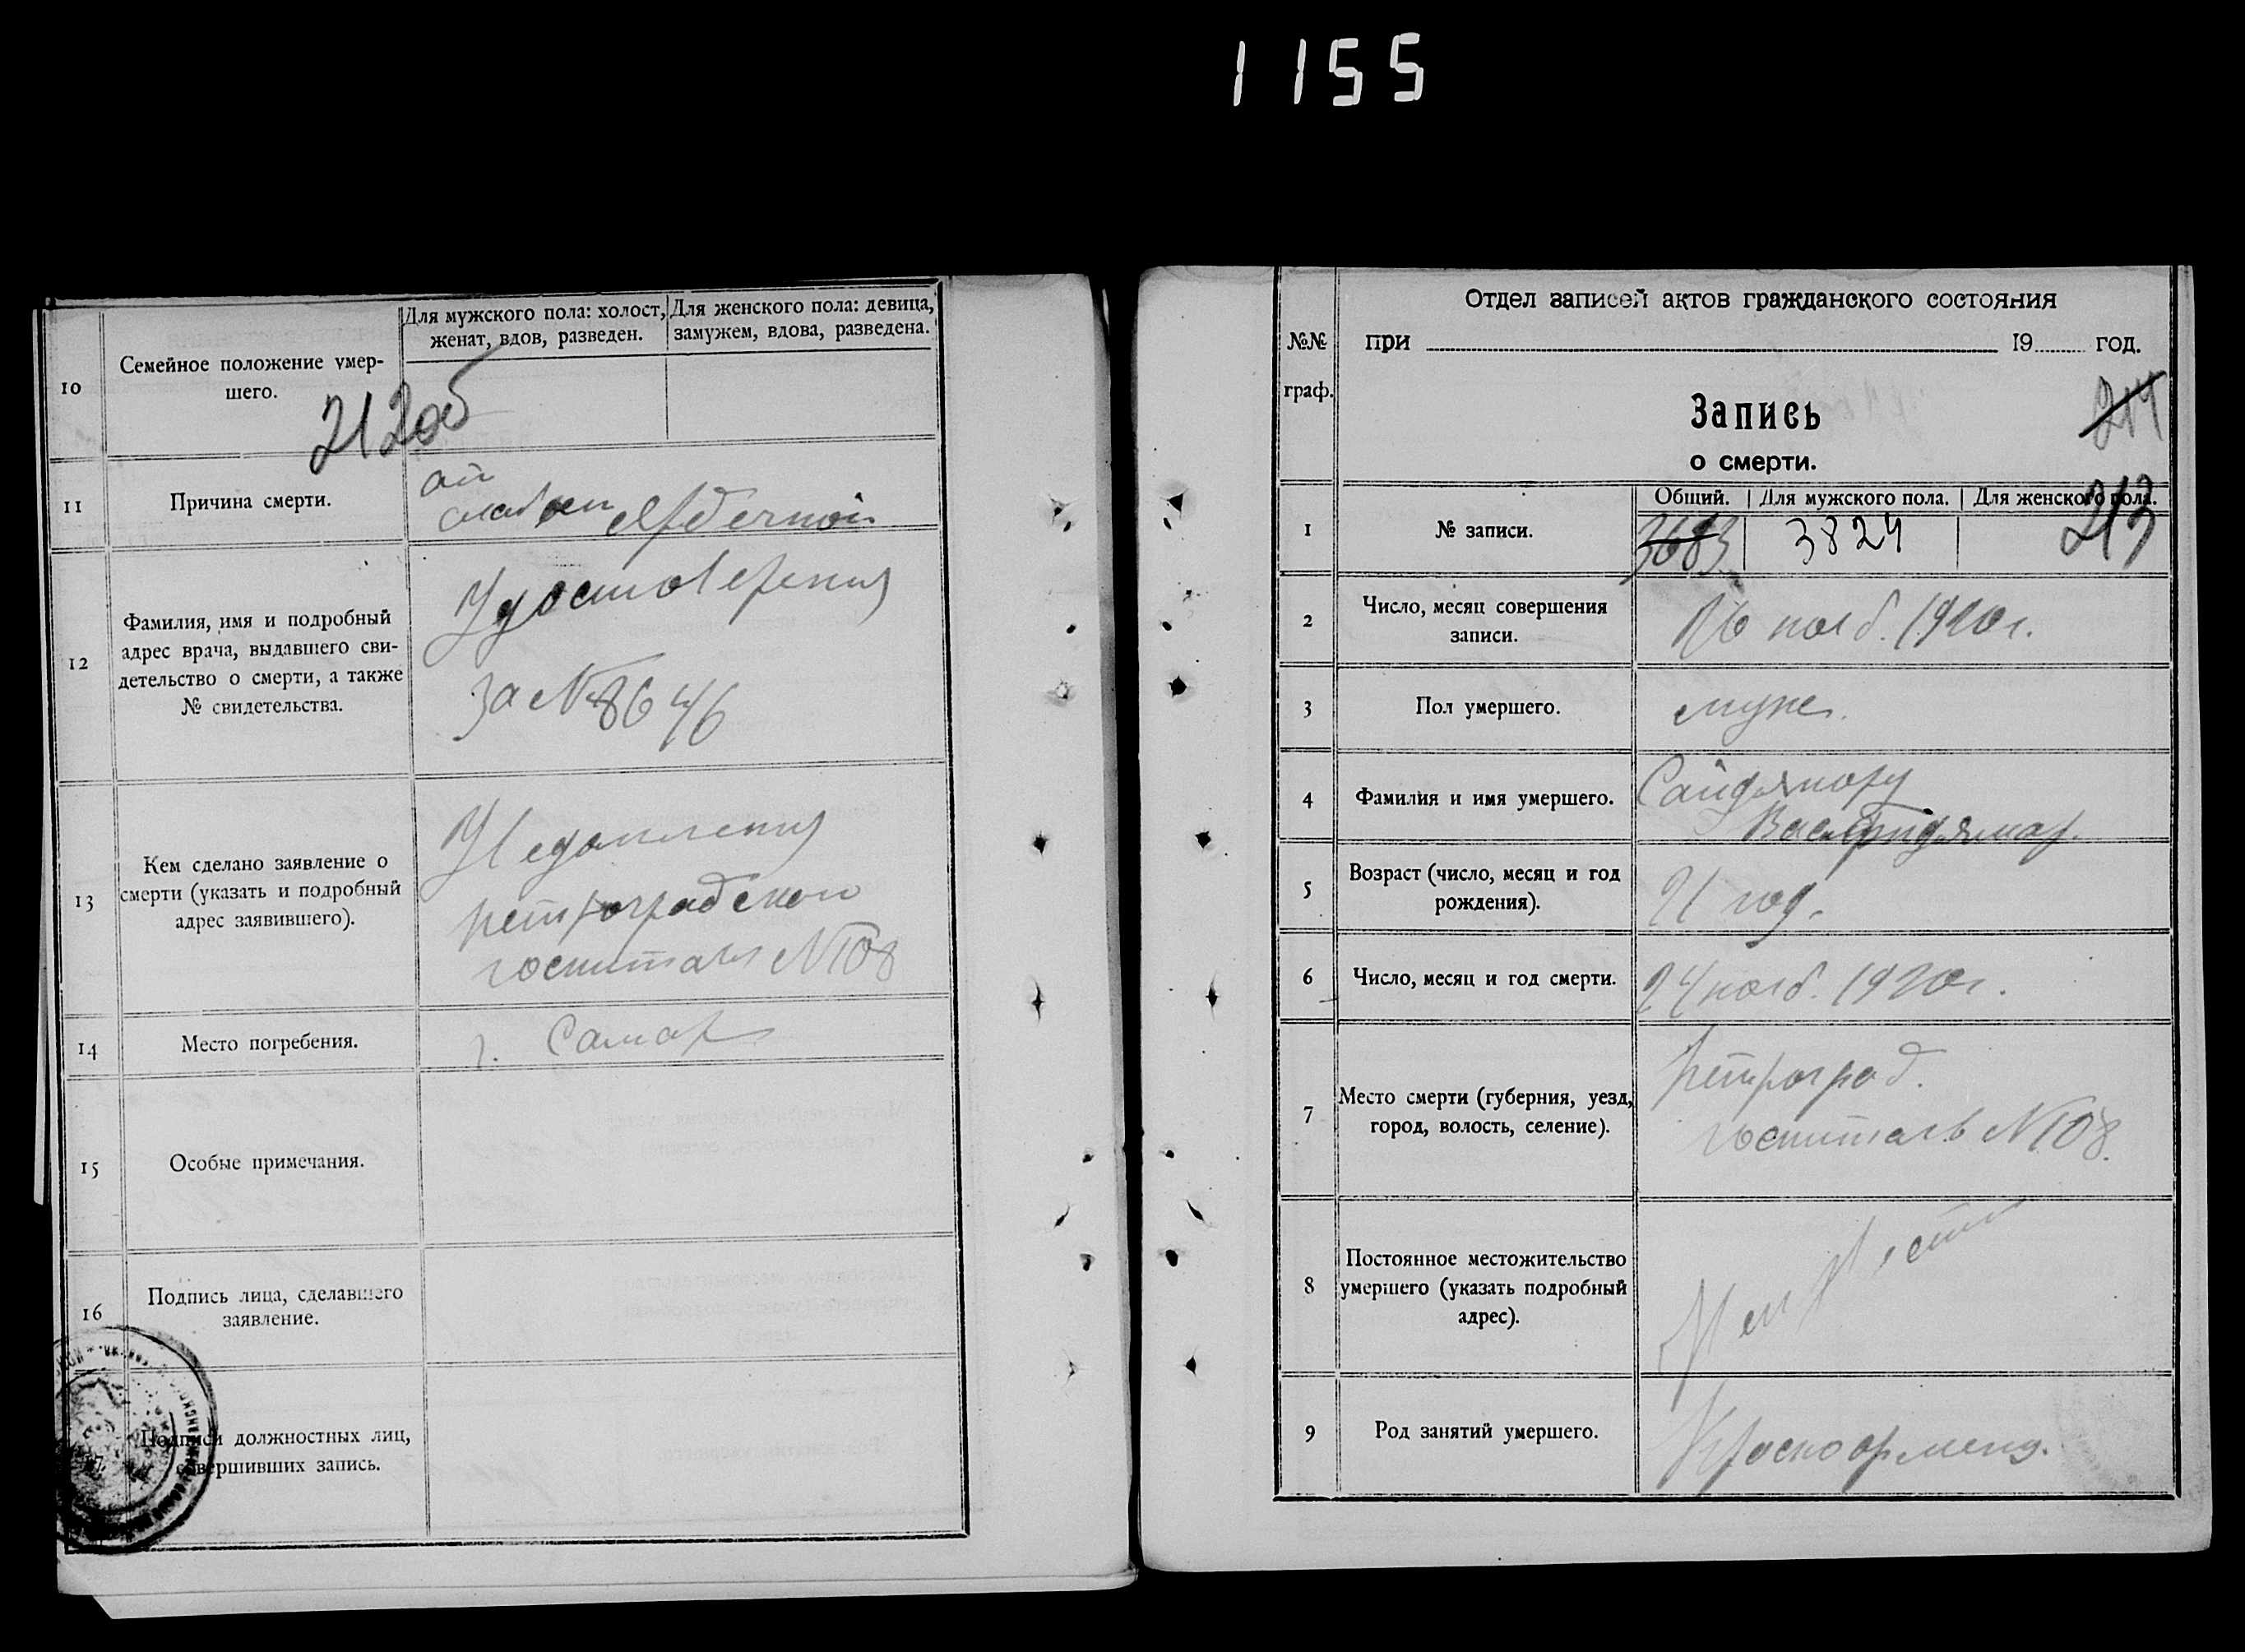 1155
10
Семейное положение умер-
шего.
Для мужского пола: холост,
женат, вдов, разведен.
Для женского пола: девица,
замужем, вдова, разведена.
212об
11
Причина смерти.
от
слабости сердечной
12
Фамилия, имя и подробный
адрес врача, выдавшего сви-
детельство о смерти, а также
№ свидетельства.
Удостоверения
за № 8646
13
Кем сделано заявление о
смерти (указать и подробный
адрес заявившего).
Уведомления
петроградской
госпиталя № 108
14
Место погребения.
г. Самара
15
Особые примечания.
16
Подпись лица, сделавшего
заявление.
17
Подписи должностных лиц,
совершивших запись.
№№
граф.
Отдел записей актов гражданского состояния
при 19 год.
Запись
о смерти.
214
213
1
№ записи.
Общий. Для мужского пола. Для женского пола.
3683 3824
2
Число, месяц совершения
записи.
26 нояб. 1920 г.
3
Пол умершего.
муж.
4
Фамилия и имя умершего.
5
Возраст (число, месяц и год
рождения).
21 год.
6
Число, месяц и год смерти.
24 нояб. 1920 г.
7
Место смерти (губерния, уезд,
город, волость, селение).
петроград.
госпиталь № 108.
8
Постоянное местожительство
умершего (указать подробный
адрес).
Неизвестно
9
Род занятий умершего.
Красноармеец.